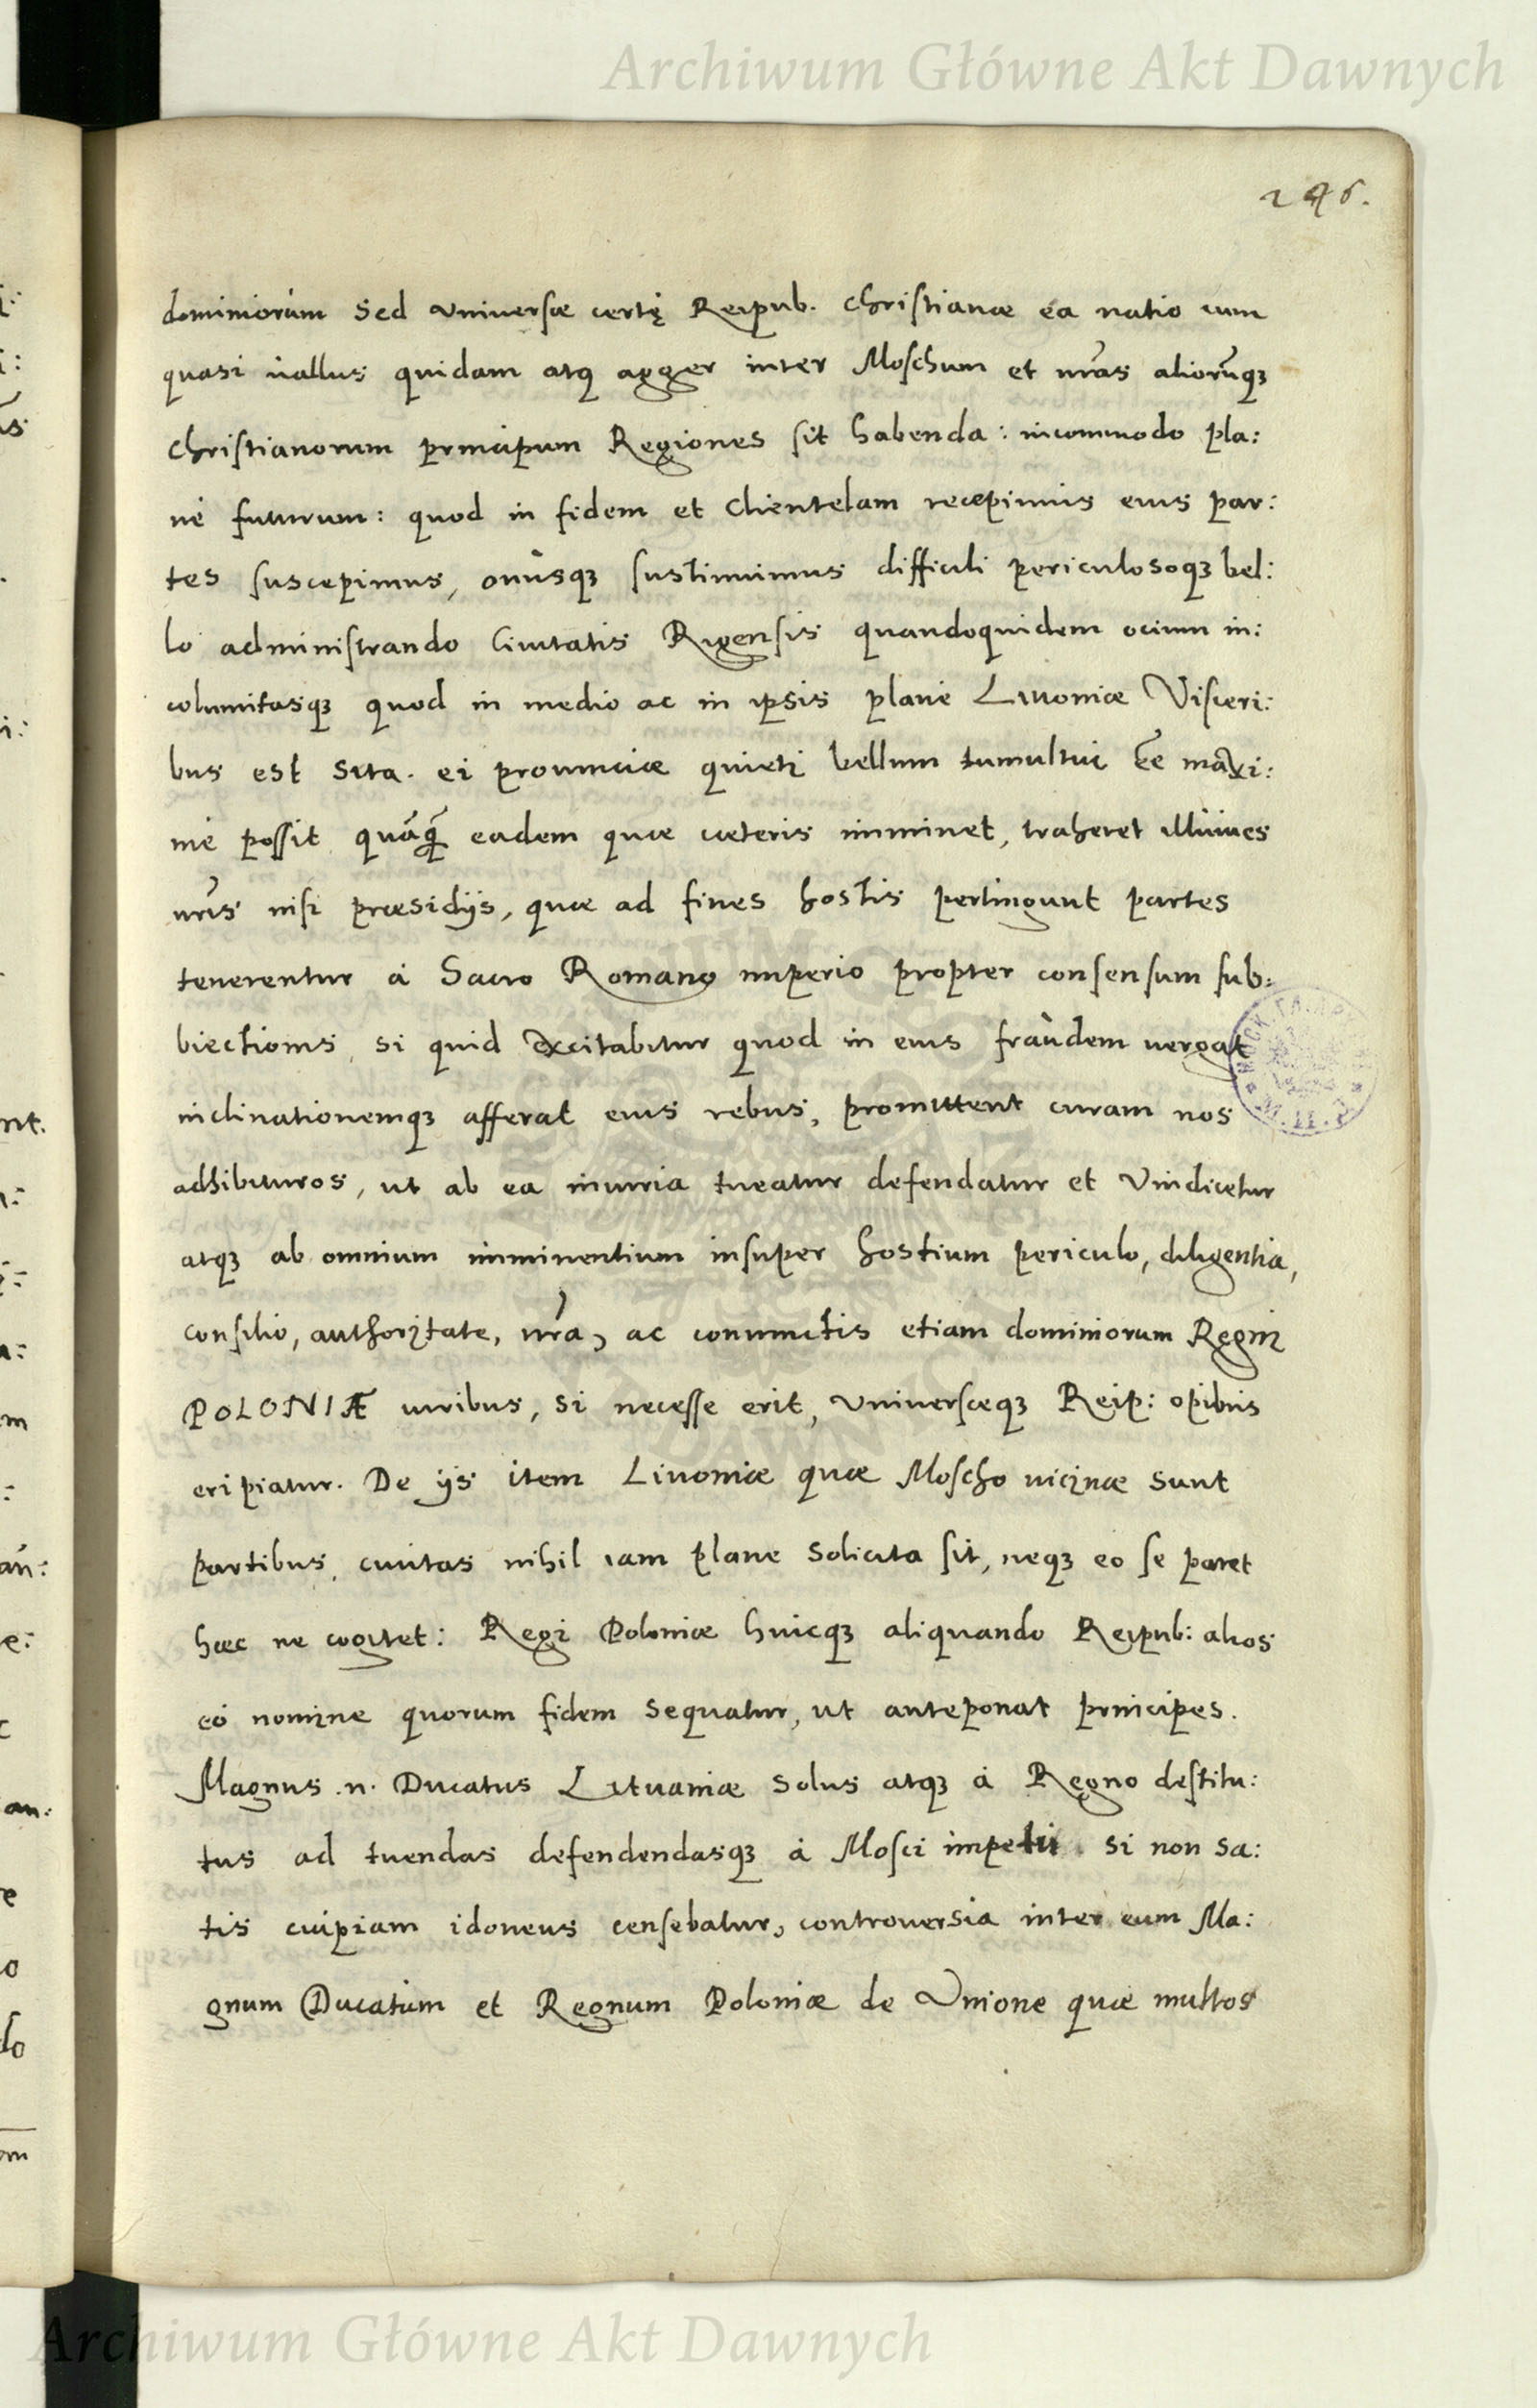 Archiwum Główne Akt Dawnych
246.
dominiorùm Sed universæ certę Reipub. Christianæ ea natio cum
quasi vallus quidam atq; agger inter Moschum et nr̃as aliorũq;
Christianorum principum Regiones sit habenda: incommodo pla:
nè futurum: quod in fidem et Clientelam recepimus eius par:
tes suscepimus, onùsq; sustinuimus difficili periculosoq; bel:
lo administrando Civitatis Rigensis quandoquidem ocium in:
columitasq; quod in medio ac in ipsis planè Livoniæ Visceri:
bus est sita. ei provinciæ quieti bellum tumultui ẽe maxi:
mè possit quãq̃ eadem quæ cæteris imminet, traheret
nr̃is nisi præsidijs, quæ ad fines hostis pertingunt partes
tenerentur à Sacro Romano imperio propter consensum sub:
biectionis, si quid excitabitur quod in eius fraùdem vergat
inclinationemq; afferat eius rebus, promittent curam nos
adhibituros, ut ab ea iniuria tueatur defendatur et Vindicetur
atq; ab omnium imminentium insuper hostium periculo, diligentia,
consilio, authoritate, nr̃a, ac coniunctis etiam dominiorum Regni
POLONIÆ viribus, si necesse erit, universæq; Reip: opibus
eripiatur. De ijs item Livoniæ quæ Moscho vicinæ sunt
partibus, civitas nihil iam plane solicita sit, neq; eo se paret
hæc ne cogitet: Regi Poloniæ huicq; aliquando Reipub: alios
eò nomine quorum fidem sequatur, ut anteponat principes.
Magnus .n. Ducatus Lituaniæ solus atq; à Regno destitu:
tus ad tuendas defendendasq; à Mosci impetu si non sa:
tis cuipiam idoneus censebatur, controversia inter eum Ma:
gnum Ducatum et Regnum Poloniæ de Unione quæ multos
Archiwum Główne Akt Dawnych